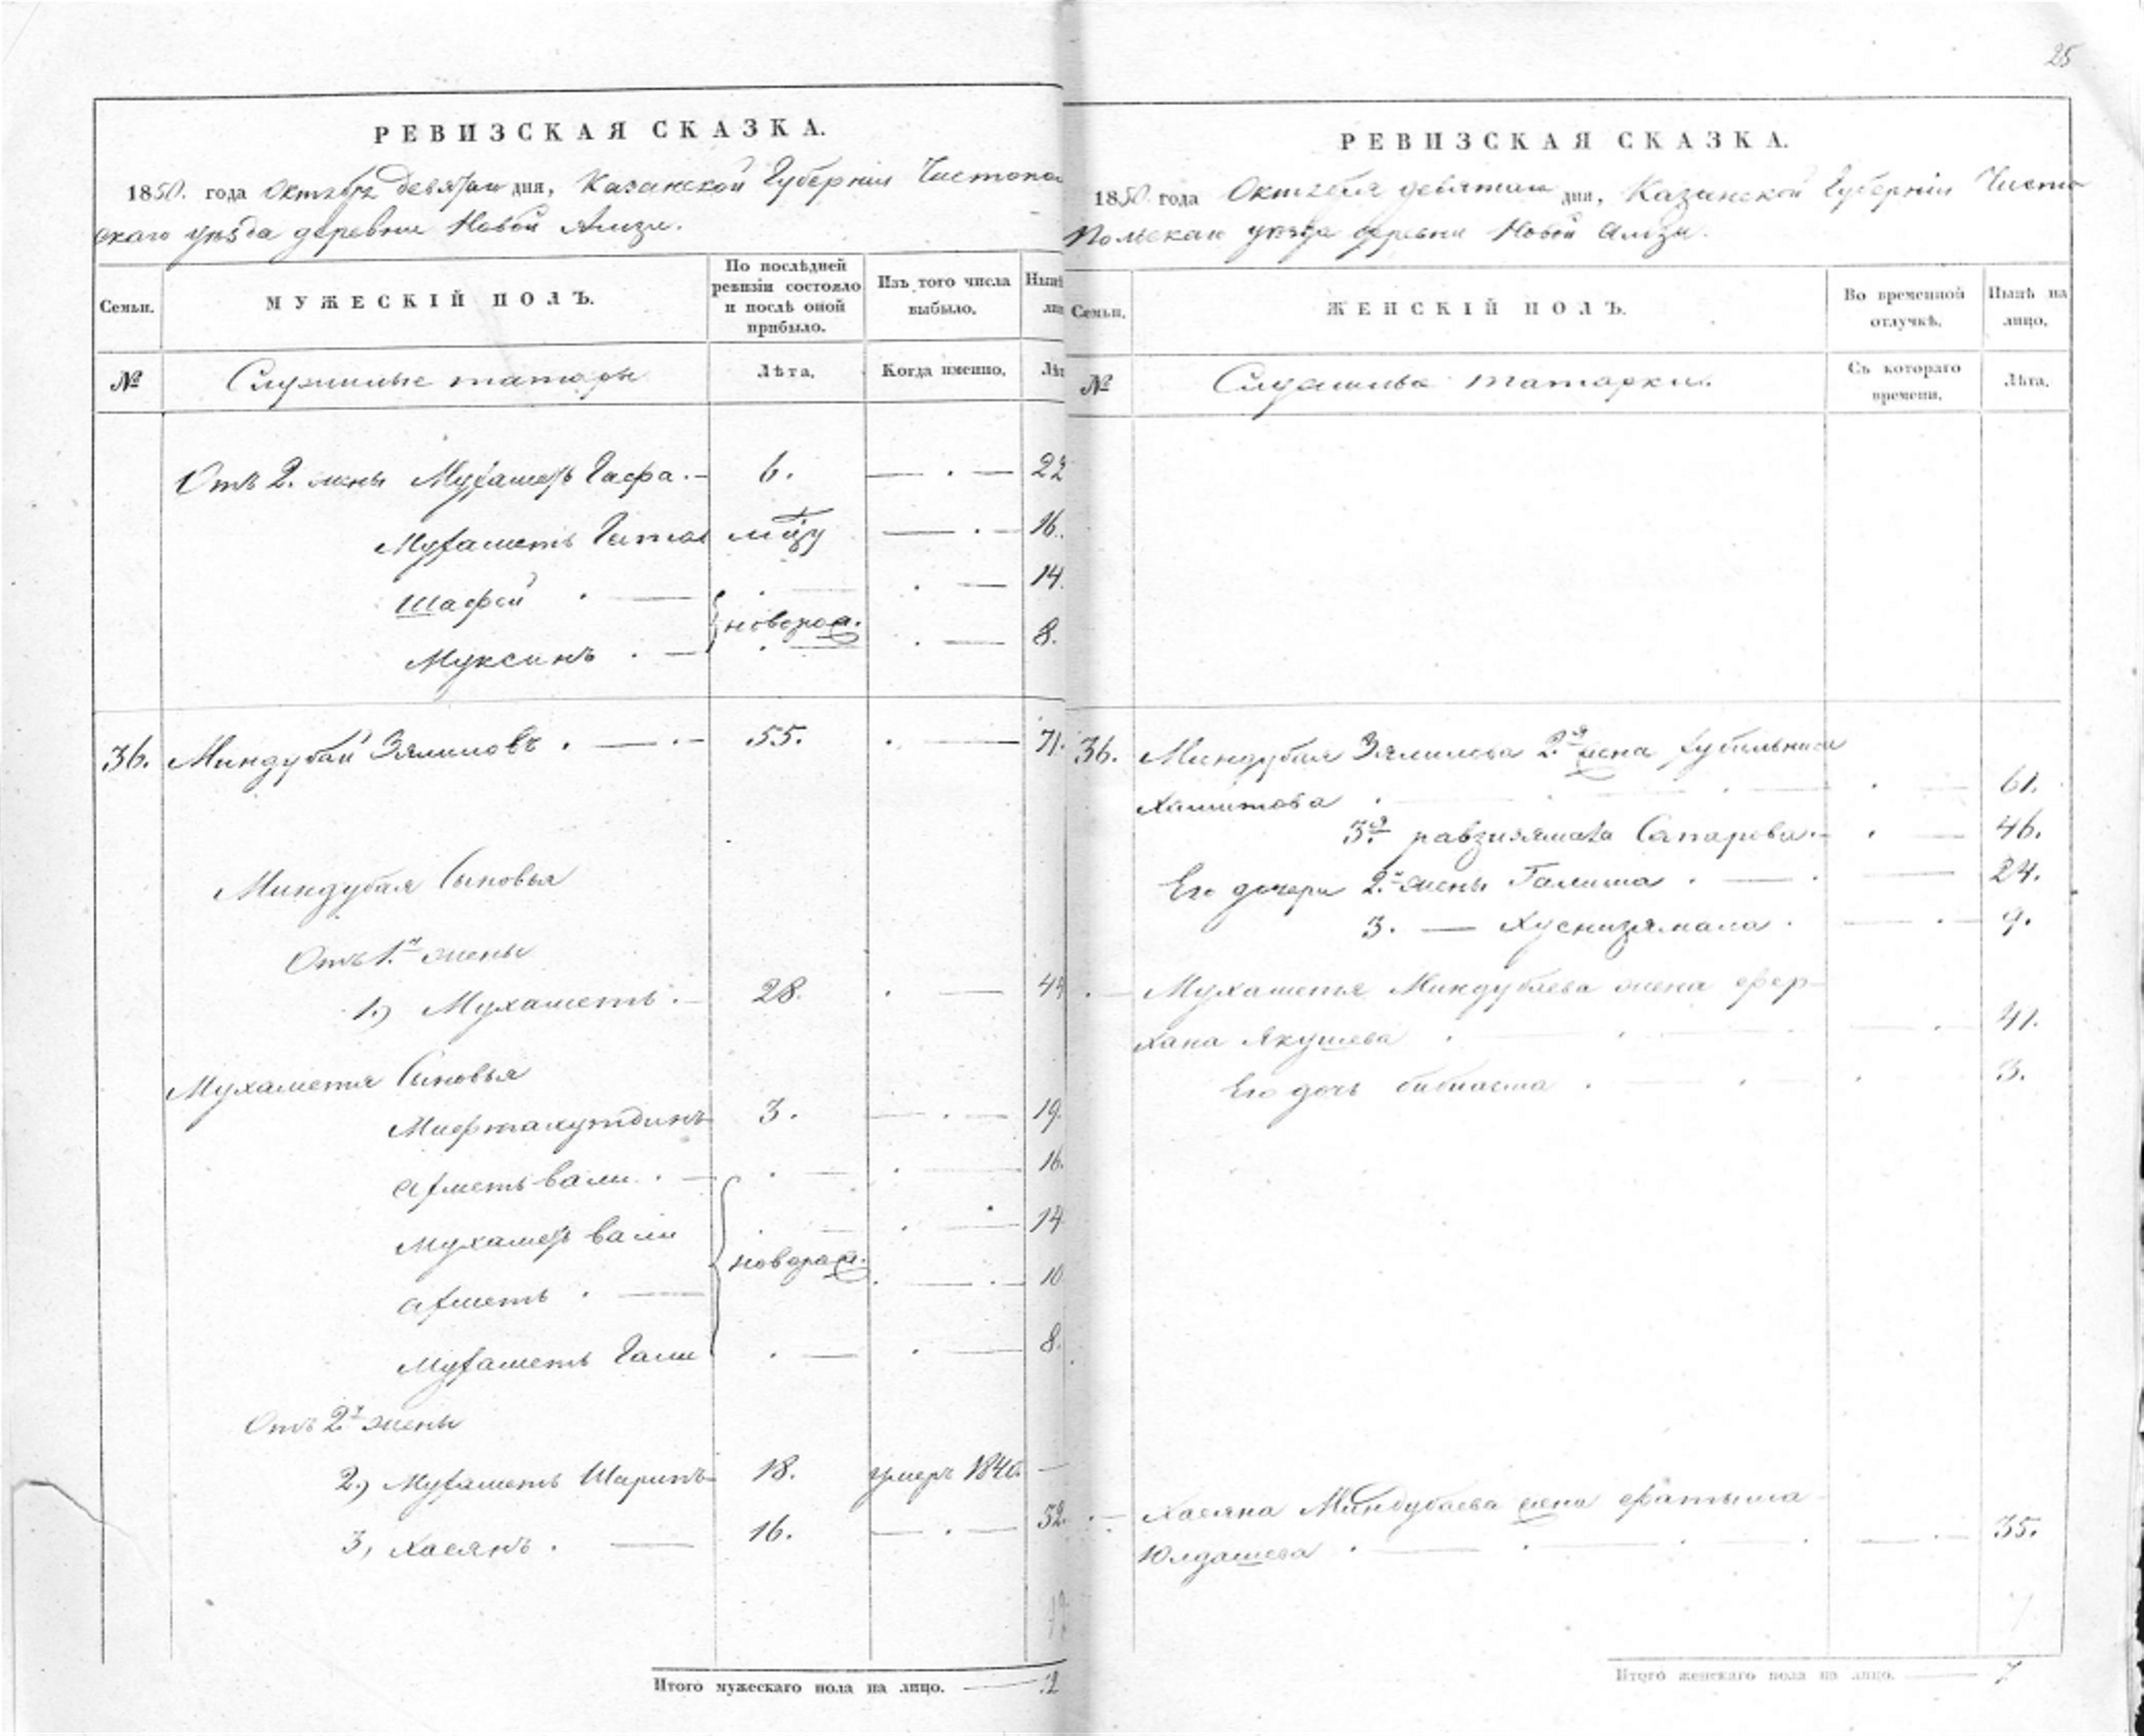 25
РЕВИЗСКАЯ СКАЗКА.
1850. года Октября девятаго дня, Казанской Губерніи Чистопо
скаго уѣзда деревни Новой Амзи.
Семьи. МУЖЕСКІЙ ПОЛЪ. По послѣдней ревизіи состояло и послѣ оной прибыло. Изъ того числа выбыло. Нынѣ
№ Служилые татары Лѣта. Когда именно. Лѣт
Отъ 2. жены Мухаметъ Гафа. 6. 22
Мухаметъ 16.
Шафей 14.
новорож.
Муксинъ 8.
36. Миндубай Зялиловъ 55. 71.
Миндубая Сыновья
Отъ 1й жены
1.) Мухаметъ 28. 44
Мухаметя Сыновья
Мифтахутдинъ 3. 19.
Ахметьвали 16.
Мухаметь вали 14
новорож.
Ахметь 10
Мухаметь Гали 8.
Отъ 2й жены
2.) Мухаметь Шарипъ 18. умеръ 1840.
3, Хасянъ 16. 32.
Итого мужескаго пола на лицо. 12
РЕВИЗСКАЯ СКАЗКА.
1850. года Октября девятаго дня, Казанской Губерніи Чисто
Польскаго уѣзда деревни Новой Амзи.
Семьи. ЖЕНСКІЙ ПОЛЪ. Во временной отлучкѣ. Нынѣ на лицо.
№ Служилыя татарки. Съ котораго времени. Лѣта.
36. Миндубая Зялилова 2я жена
Хамитова 61.
3я Сапарова 46.
Его дочери 2й жены Галима 24.
3. — Хуснизямала 9.
Мухаметя Миндубаева жена Фер-
хана Якушева 41.
Его дочь Бибиасма 3.
Хасяна Миндубаева жена Фатыма
Юлдашева 35.
Итого женскаго пола на лицо. 7